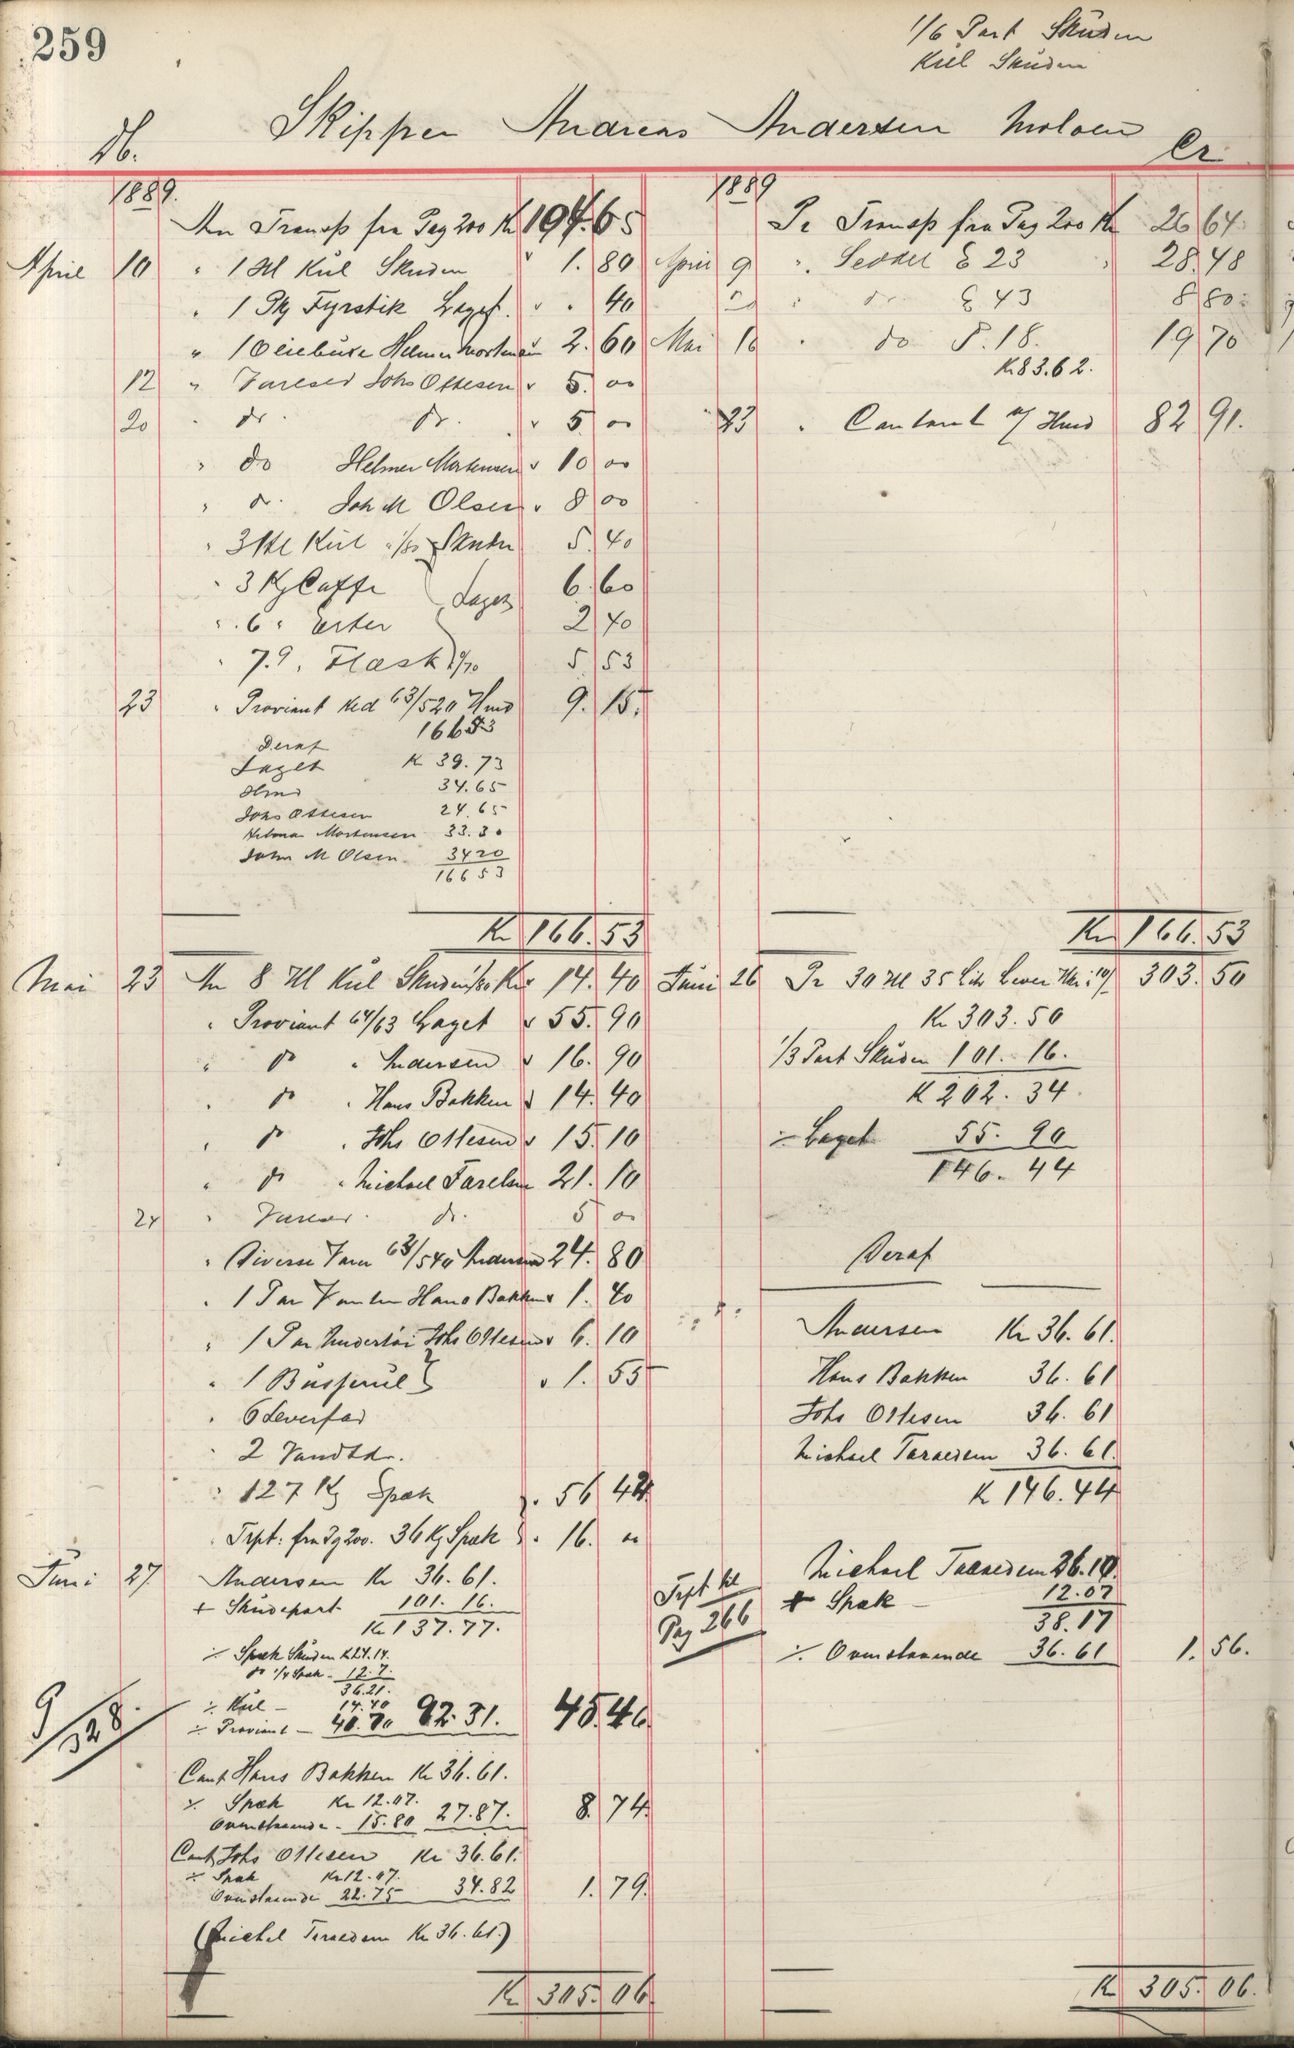 259
1/6 Part Skuden
Kul Skuden
Skipper Andreas Andersen
Db.
Cr
1889.
An Transp fra Pag 200 Kr 104.65
April 10 " 1 Hl Kul Skuden " 1.80
" 1 Pk Fyrstik Laget. " " 40
" 1 Oliebuxe Helmer Mortensen 2.60
12 " Varesed Johs Ottesen " 5.00
20 " do do " 5.00
" do Helmer Mortensen " 10.00
" do Joh M Olsen " 8.00
" 3 Hl Kul a 1/80 Skuden 5.40
" 3 Kg Caffe } Laget 6.60
" 6 " Erter 2.40
" 7.9 " Flæsk a/70 5.53
23 " Proviant Med 63/520 Hmd 9.15
166.53
Deraf
Laget K 39.73
Hmd 34.65
Johs Ottesen 24.65
Helmer Mortensen 33.30
John M Olsen 34.20
166.53
Kr 166.53
Mai 23 An 8 Hl Kul Skuden 1/80 Kr 14.40
" Proviant 64/63 Laget " 55.90
" do " Andersen " 16.90
" do " Hans Bakken " 14.40
" do " Johs Ottesen " 15.10
" do " Michael 21.10
24 " Varesed do. 5.00
" Diverse Varer 63/540 Andersen 24.80
" 1 Par Vanter Hans Bakken " 1.40
" 1 Par Undertøi Johs Ottesen " 6.10
" 1 } " 1.55
" 6 Leverfad
" 2 Vandtdr.
" 127 Kg Spæk } " 56.44
" Trpt: fra Pg 200. 36 Kg Spæk } " 16.00
Juni 27 Andersen Kr 36.61.
+ Skudepart 101.16.
Kr 137.77.
÷ Spæk Skuden K 24.14.
do 1/4 Spæk - 12.7.
36.21.
÷ Kul - 14.40
÷ Proviant - 40.70 92.31. 45.46
9/328.
Cant Hans Bakken Kr 36.61.
÷ Spæk Kr 12.07.
Ovenstaaende - 15.80 27.87. 8.74
Cant Johs Ottesen Kr 36.61.
÷ Spæk Kr 12.07.
Ovenstaaende 22.75 34.82 1.79.
(Michel Kr 36.61.)
Kr 305.06
1889
Pr Transp fra Pag 200 Kr 26.64
April 9 " Seddel E 23 " 28.48
" do E 43 8.80
Mai 16 " do P. 18. 19.70
Kr 83.62.
23 " Contant a/ Hmd 82.91.
Kr 166.53
Juni 26 Pr 30 Hl 35 Ltr Lever 10/ 303.50
Kr 303.50
1/3 Part Skuden 101.16.
K 202.34
÷ Laget 55.90
146.44
Deraf
Andersen Kr 36.61.
Hans Bakken 36.61
Johs Ottesen 36.61
Michael 36.61
K 146.44
Michael 26.10.
+ Spæk - 12.07
38.17
÷ Ovenstaaende 36.61 1.56.
Trpt til
Pag 266
Kr 305.06.